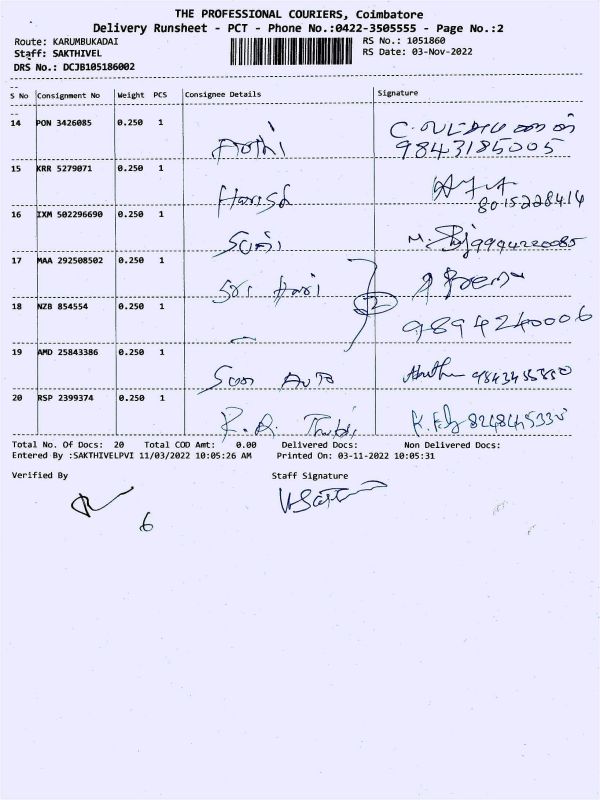 THE PROFESSIONAL COURIERS, Coimbatore
Delivery Runsheet - PCT - Phone No.:0422-3505555 - Page No.:2
Route: KARUMBUKADAI
RS No.: 1051860
Staff: SAKTHIVEL
RS Date: 03-Nov-2022
DRS No.: DCJB105186002
S No Consignment No Weight PCS Consignee Details Signature
14 PON 3426085 0.250 1 Arthi
9843185005
15 KRR 5279071 0.250 1 Harish
8015228414
16 IXM 502296690 0.250 1
17 MAA 292508502 0.250 1 Sri Hari
18 NZB 854554 0.250 1 2
9894240006
19 AMD 25843386 0.250 1 Auto
20 RSP 2399374 0.250 1
Total No. Of Docs: 20 Total COD Amt: 0.00 Delivered Docs: Non Delivered Docs:
Entered By :SAKTHIVELPVI 11/03/2022 10:05:26 AM Printed On: 03-11-2022 10:05:31
Verified By Staff Signature
6